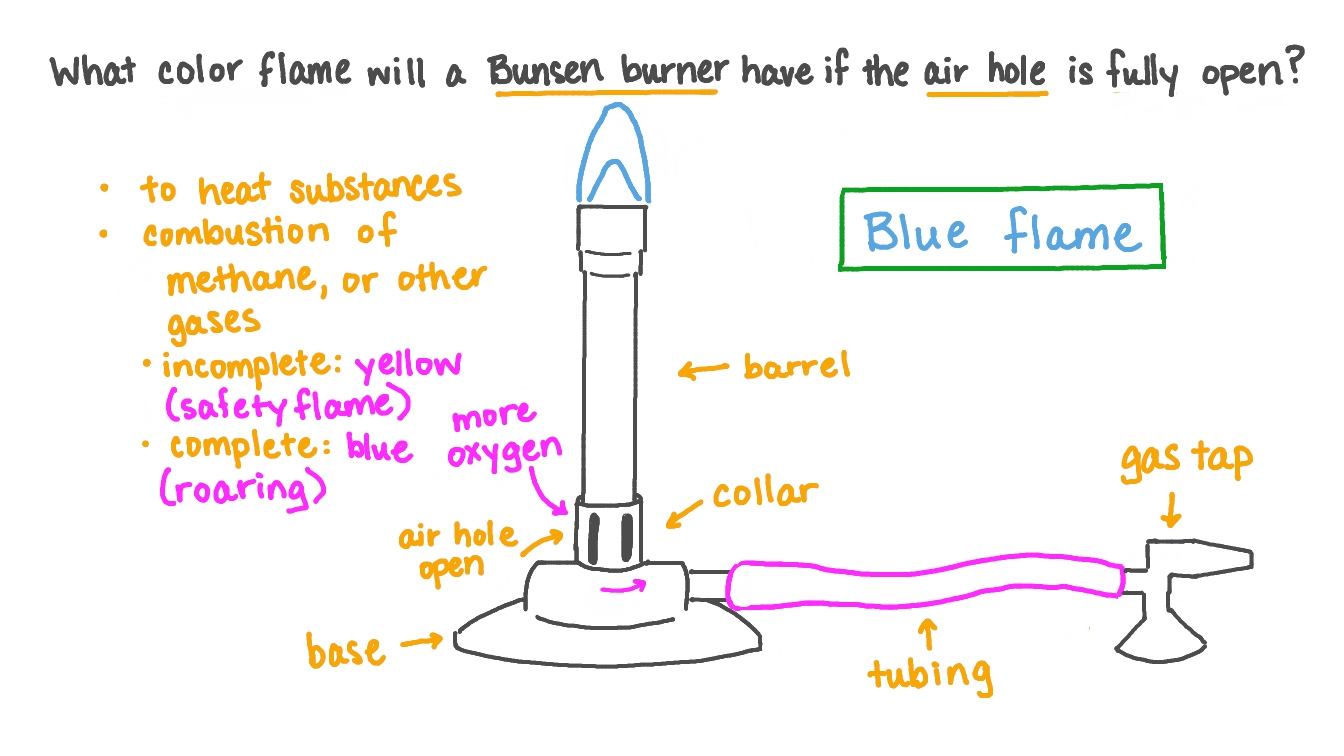 What color flame will a Bunsen burner have if the air hole is fully open?
• to heat substances
• combustion of
methane, or other
gases
• incomplete: yellow
(safety flame)
• complete: blue
(roaring)
more
oxygen
air hole
open
base
Blue flame
barrel
collar
gas tap
tubing